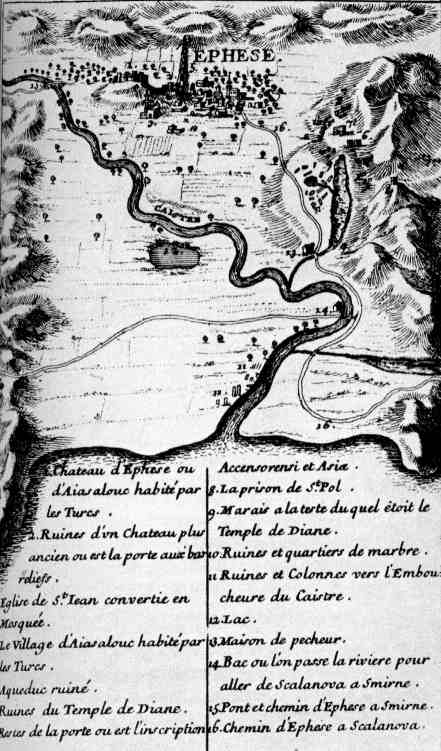 EPHESE.
CAISTRE
13
16
15
14
11
16.
1. Chateau d'Ephese ou
d'Aiasalouc habité par
les Turcs.
2. Ruines d'un Chateau plus
ancien ou est la porte aux bas
reliefs.
Eglise de St. Iean convertie en
Mosquée.
Le Village d'Aiasalouc habité par
les Turcs.
Aqueduc ruiné.
Ruines du Temple de Diane.
Restes de la porte ou est l'inscription
Accensorensi et Asiæ.
8. La prison de St. Pol.
9. Marais a la teste du quel étoit le
Temple de Diane.
10. Ruines et quartiers de marbre.
11 Ruines et Colonnes vers l'Embou:
cheure du Caistre.
12. Lac.
13. Maison de pecheur.
14. Bac ou l'on passe la riviere pour
aller de Scalanova a Smirne.
15. Pont et chemin d'Ephese a Smirne.
16. Chemin d'Ephese a Scalanova.